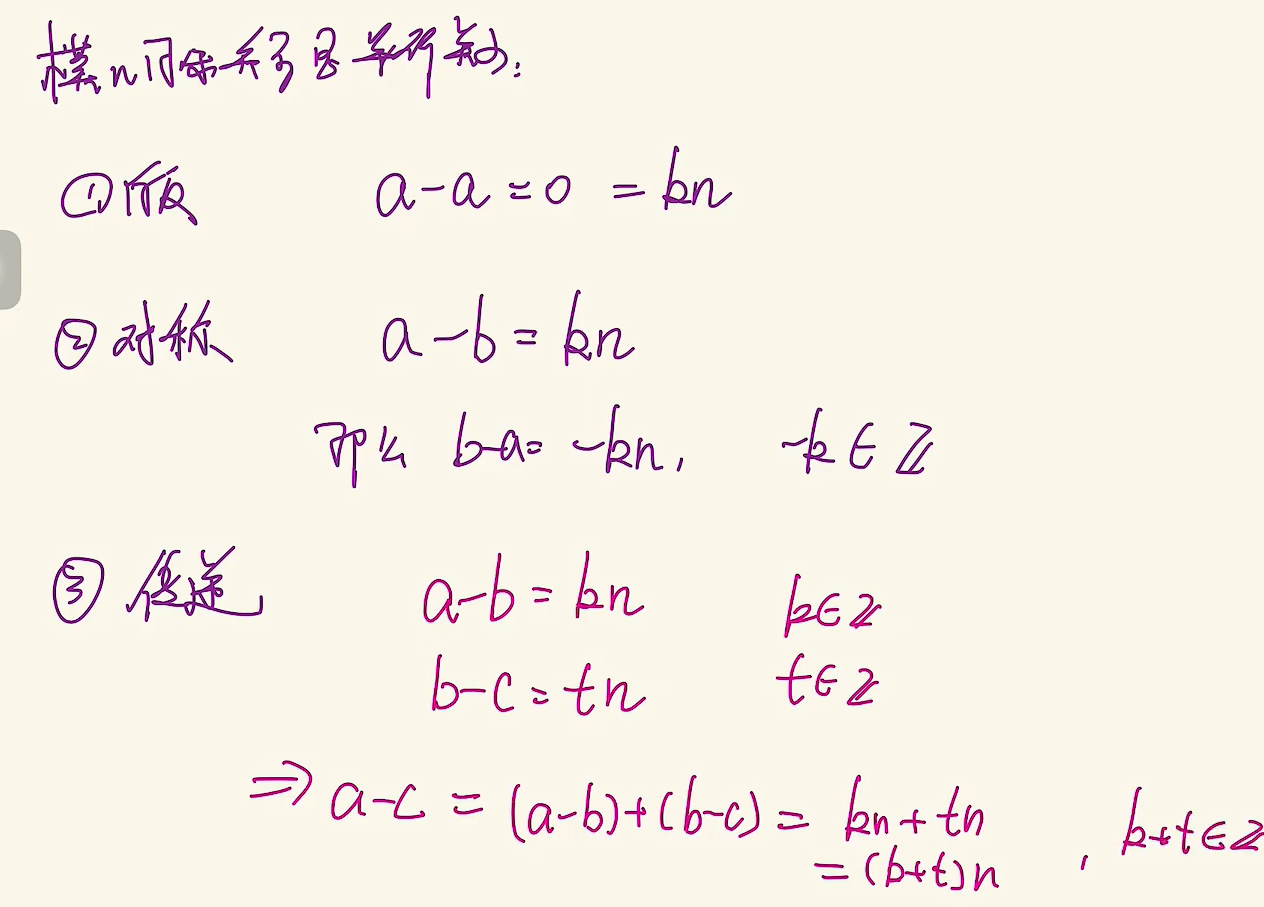 模n同余关系是等价关系:
① 自反 a-a=0=kn
② 对称 a-b=kn
那么 b-a=-kn, -k∈ℤ
③ 传递 a-b=kn k∈ℤ
b-c=tn t∈ℤ
⇒ a-c=(a-b)+(b-c)=kn+tn
=(k+t)n , k+t∈ℤ